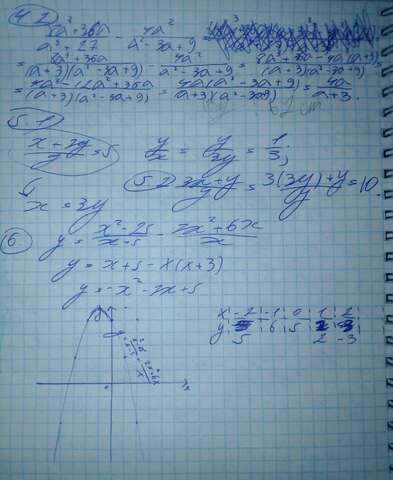 4.2) (8a² + 36a)/(a³ + 27) - 4a²/(a² - 3a + 9) =
= (8a² + 36a)/((a+3)(a² - 3a + 9)) - 4a²/(a² - 3a + 9) = (8a² + 36a - 4a(a+3))/((a+3)(a² - 3a + 9)) =
= (4a² - 12a² + 36a)/((a+3)(a² - 3a + 9)) = 4a(a² - 3a + 9)/((a+3)(a² - 3a + 9)) = 4a/(a+3).
5.1) (x + 2y)/y = 5 y/x = y/3y = 1/3;
x = 3y 5.2) (3x + y)/y = (3(3y) + y)/y = 10.
6) y = (x² - 25)/(x - 5) - (2x² + 6x)/x
y = x + 5 - x(x + 3)
y = -x² - 2x + 5
x -2 -1 0 1 2
y 5 6 5 2 -3
5 2 -3